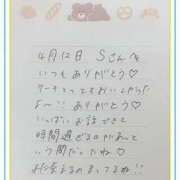 4月12日 Sさんへ
いつもありがとう♡
ケーキとってもおいしかった
よ〜!! ありがとう♡
いっぱいお話できて
時間過ぎるのがあって
いう間だったね♡
また会えるのまってるね!!